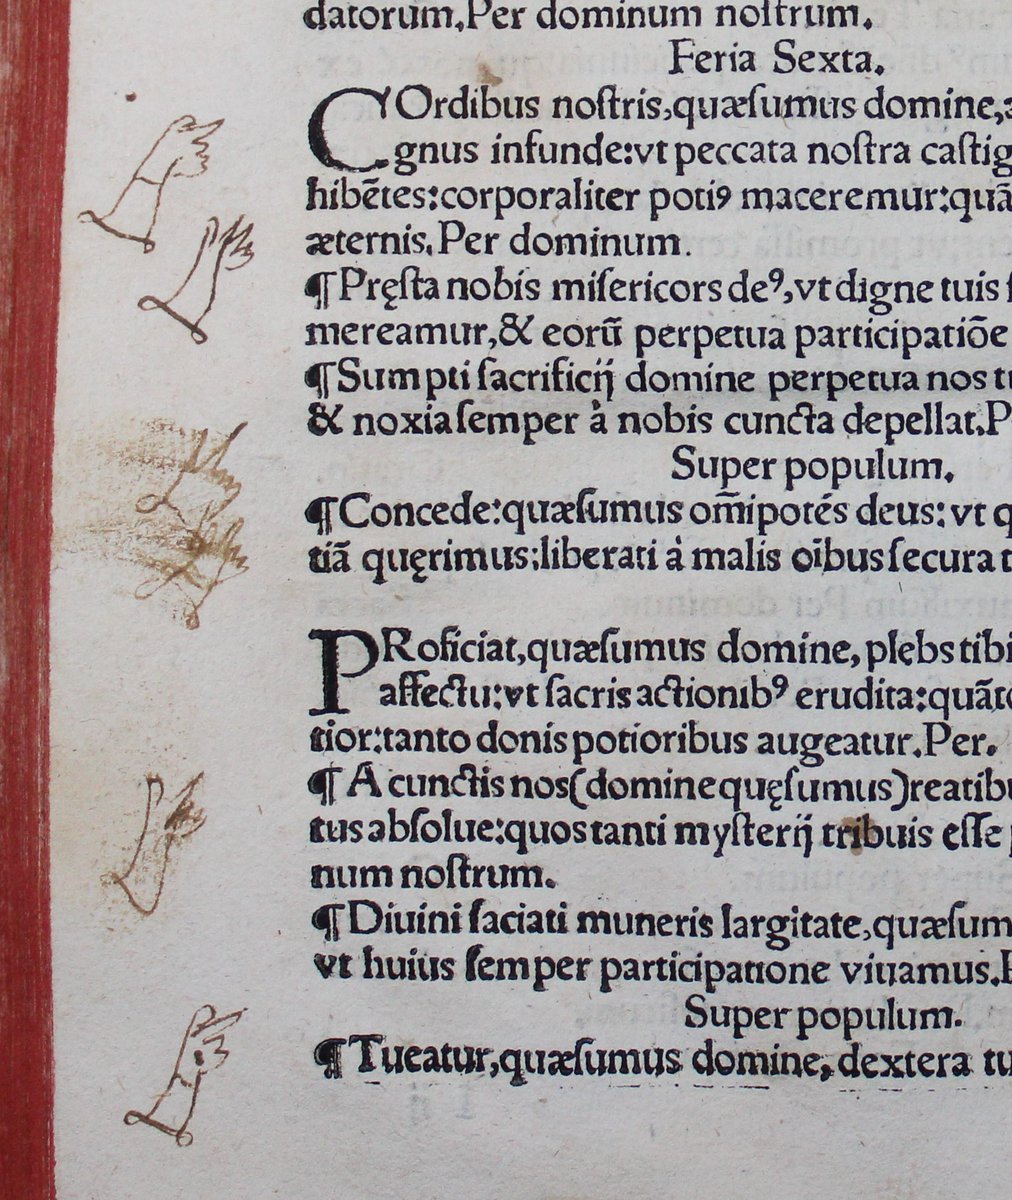 datorum.Per dominum noſtrum.
Feria Sexta.
COrdibus noſtris,quæſumus domine,
gnus infunde:vt peccata noſtra caſtig
hibẽtes:corporaliter potiꝰ maceremur:quã
æternis.Per dominum.
¶Pręſta nobis miſericors deꝰ,vt digne tuis ſ
mereamur,& eorũ perpetua participatiõe
¶Sumpti ſacrificij domine perpetua nos tu
& noxia ſemper à nobis cuncta depellat.P
Super populum.
¶Concede:quæſumus om̃ipotẽs deus: vt q
tiã quęrimus:liberati à malis oĩbus ſecura t
PRoficiat,quæſumus domine, plebs tibi
affectu:vt ſacris actionibꝰ erudita:quãto
tior:tanto donis potioribus augeatur.Per.
¶A cunctis nos(domine quęſumus)reatibu
tus abſolue:quos tanti myſterij tribuis eſſe
num noſtrum.
¶Diuini ſaciati muneris largitate,quæſum
vt huius ſemper participatione viuamus.
Super populum.
¶Tueatur,quæſumus domine, dextera tu